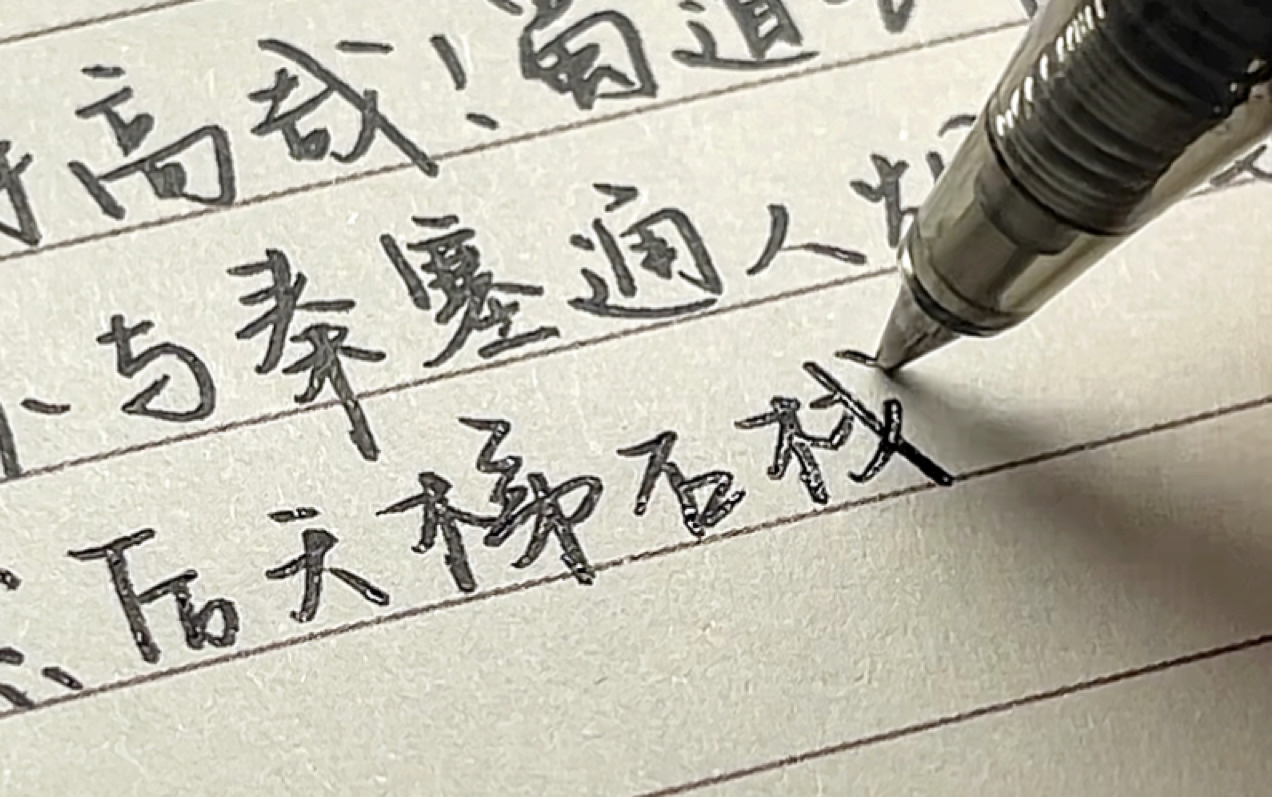 高哉!蜀道
与秦塞通人
后天梯石栈